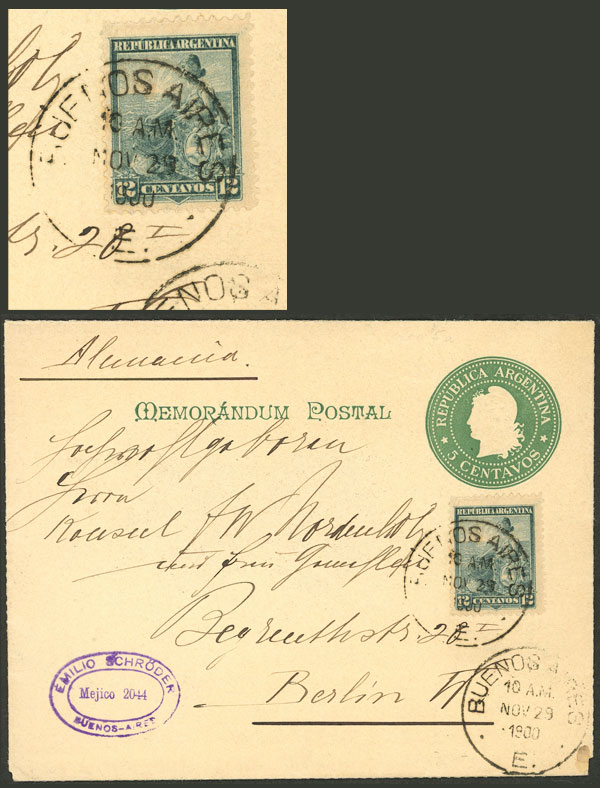 REPUBLICA ARGENTINA
BUENOS AIRES
10 A.M.
NOV 29
1900
12 CENTAVOS 12
E.
20 I
BUENOS
Alemania.
MEMORÁNDUM POSTAL
REPUBLICA ARGENTINA
5 CENTAVOS
Hochwohlgeboren
Herrn
Konsul F W Nordenholz
und Frau Gemahlin
REPUBLICA ARGENTINA
BUENOS AIRES
10 A.M.
NOV 29
1900
12 CENTAVOS 12
E.
20 I
Berlin W
EMILIO SCHRÖDER
Mejico 2044
BUENOS-AIRES
BUENOS AIRES
10 A.M.
NOV 29
1900
E.